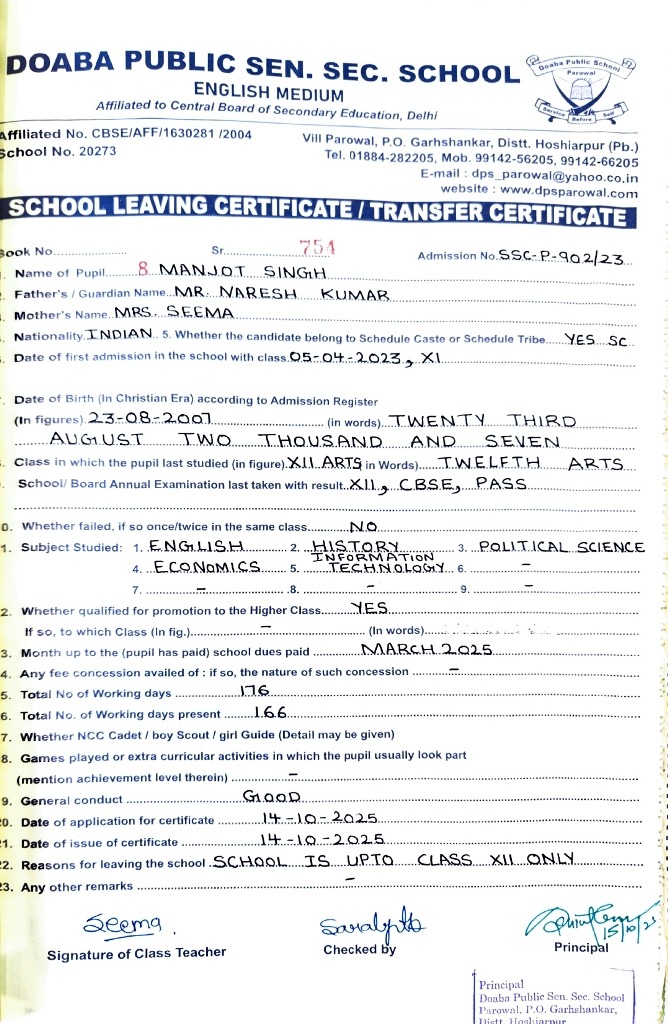 DOABA PUBLIC SEN. SEC. SCHOOL
ENGLISH MEDIUM
Affiliated to Central Board of Secondary Education, Delhi
Doaba Public School
Parowal
Service Before Self
Affiliated No. CBSE/AFF/1630281 /2004
School No. 20273
Vill Parowal, P.O. Garhshankar, Distt. Hoshiarpur (Pb.)
Tel. 01884-282205, Mob. 99142-56205, 99142-66205
E-mail : dps_parowal@yahoo.co.in
website : www.dpsparowal.com
SCHOOL LEAVING CERTIFICATE / TRANSFER CERTIFICATE
Book No. Sr. 754 Admission No. SSC-P-902/23
Name of Pupil 8 MANJOT SINGH
Father's / Guardian Name MR. NARESH KUMAR
Mother's Name MRS. SEEMA
Nationality INDIAN 5. Whether the candidate belong to Schedule Caste or Schedule Tribe YES SC
Date of first admission in the school with class 05-04-2023, XI
Date of Birth (In Christian Era) according to Admission Register
(In figures) 23-08-2007 (in words) TWENTY THIRD
AUGUST TWO THOUSAND AND SEVEN
Class in which the pupil last studied (in figure) XII ARTS in Words) TWELFTH ARTS
School/ Board Annual Examination last taken with result XII, CBSE, PASS
0. Whether failed, if so once/twice in the same class NO
1. Subject Studied: 1. ENGLISH 2. HISTORY 3. POLITICAL SCIENCE
4. ECONOMICS 5. INFORMATION TECHNOLOGY 6. -
7. - .8. - 9. -
2. Whether qualified for promotion to the Higher Class YES
If so, to which Class (In fig.) - (In words)
3. Month up to the (pupil has paid) school dues paid MARCH 2025
4. Any fee concession availed of : if so, the nature of such concession -
5. Total No of Working days 176
6. Total No. of Working days present 166
7. Whether NCC Cadet / boy Scout / girl Guide (Detail may be given)
8. Games played or extra curricular activities in which the pupil usually look part
(mention achievement level therein) -
9. General conduct GOOD
20. Date of application for certificate 14-10-2025
21. Date of issue of certificate 14-10-2025
22. Reasons for leaving the school SCHOOL IS UPTO CLASS XII ONLY
23. Any other remarks -
Seema
15/10/25
Signature of Class Teacher Checked by Principal
Principal
Doaba Public Sen. Sec. School
Parowal, P.O. Garhshankar,
Distt. Hoshiarpur